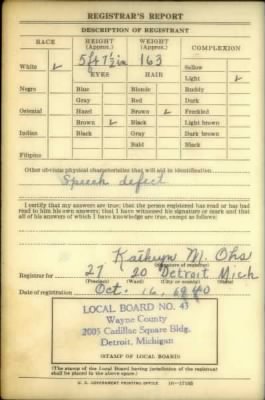 REGISTRAR'S REPORT
DESCRIPTION OF REGISTRANT
RACE HEIGHT (Approx.) WEIGHT (Approx.) COMPLEXION
5 ft 7 1/2 in 163
White ✓ EYES HAIR Sallow
Light ✓
Negro Blue Blonde Ruddy
Gray Red Dark
Oriental Hazel Brown ✓ Freckled
Brown ✓ Black Light brown
Indian Black Gray Dark brown
Bald Black
Filipino
Other obvious physical characteristics that will aid in identification
Speech defect
I certify that my answers are true; that the person registered has read or has had
read to him his own answers; that I have witnessed his signature or mark and that
all of his answers of which I have knowledge are true, except as follows:
Kathryn M.
(Signature of registrar)
Registrar for 27 20 Detroit Mich
(Precinct) (Ward) (City or county) (State)
Date of registration Oct. 16, 1940
LOCAL BOARD NO. 43
Wayne County
2005 Cadillac Square Bldg.
Detroit, Michigan
(STAMP OF LOCAL BOARD)
(The stamp of the Local Board having jurisdiction of the registrant
shall be placed in the above space.)
U. S. GOVERNMENT PRINTING OFFICE 16-17105